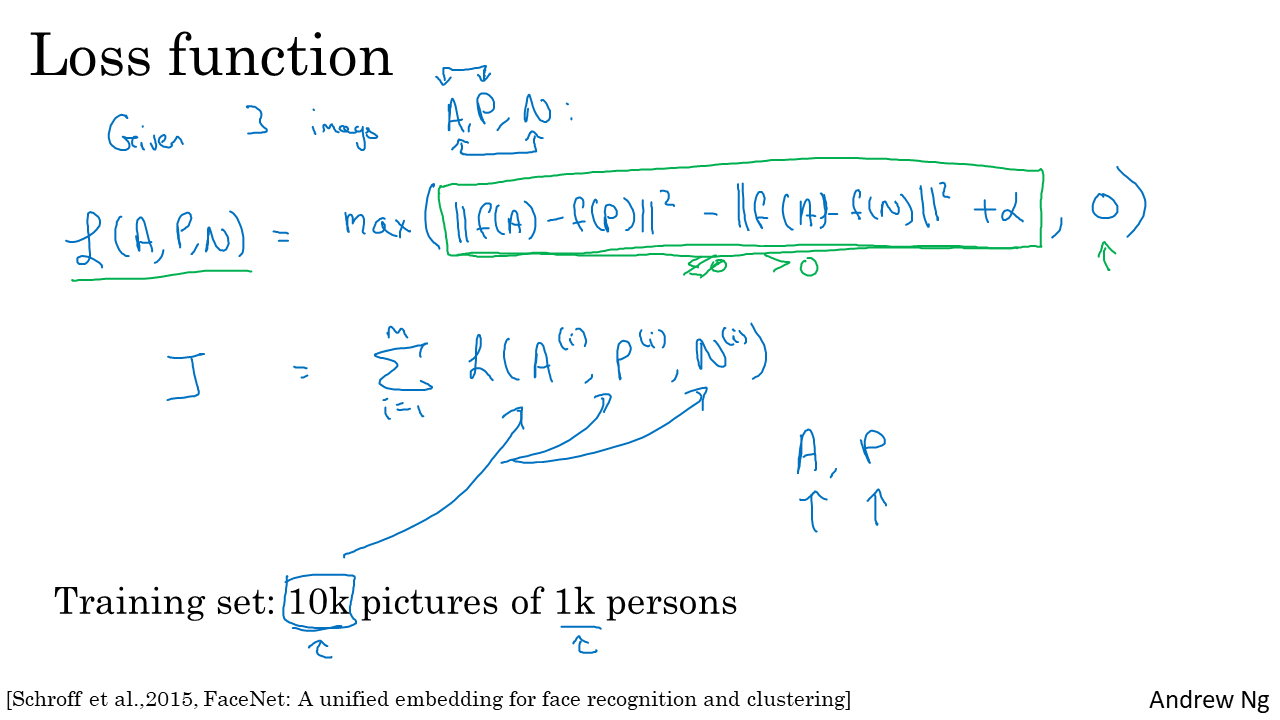 Loss function
Given 3 images A, P, N:
ℒ(A, P, N) = max(||f(A) - f(P)||² - ||f(A) - f(N)||² + α, 0)
≤0 >0
J = Σᵢ₌₁ᵐ ℒ(A⁽ⁱ⁾, P⁽ⁱ⁾, N⁽ⁱ⁾)
A, P
Training set: 10k pictures of 1k persons
[Schroff et al.,2015, FaceNet: A unified embedding for face recognition and clustering]
Andrew Ng